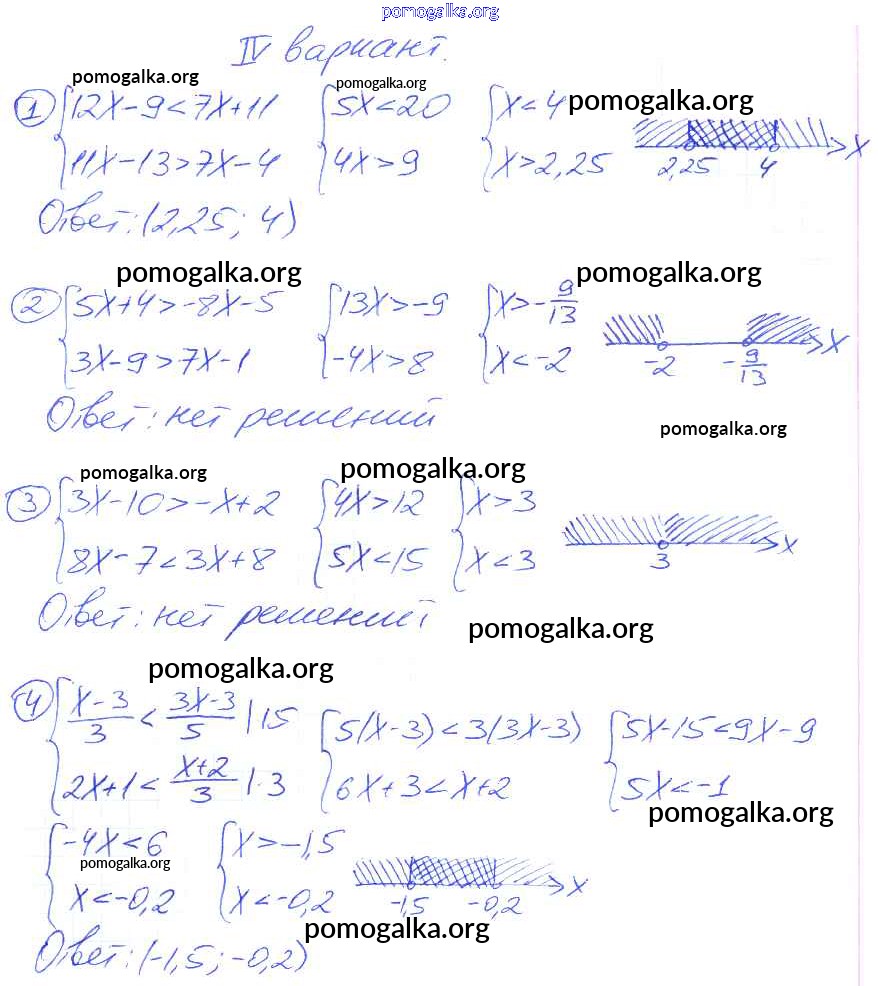 pomogalka.org
IV вариант.
pomogalka.org pomogalka.org pomogalka.org
① {12x-9<7x+11 {5x<20 {x<4
11x-13>7x-4 {4x>9 {x>2,25 2,25 4 x
Ответ: (2,25; 4)
pomogalka.org pomogalka.org
② {5x+4>-8x-5 {13x>-9 {x>-9/13
3x-9>7x-1 {-4x>8 {x<-2 -2 -9/13 x
Ответ: нет решений
pomogalka.org
pomogalka.org pomogalka.org
③ {3x-10>-x+2 {4x>12 {x>3
8x-7<3x+8 {5x<15 {x<3 3 x
Ответ: нет решений
pomogalka.org
pomogalka.org
④ {(x-3)/3 < (3x-3)/5 |15 {5(x-3)<3(3x-3) {5x-15<9x-9
2x+1<(x+2)/3 |·3 {6x+3<x+2 {5x<-1
pomogalka.org
{-4x<6 {x>-1,5
pomogalka.org
x<-0,2 {x<-0,2 -1,5 -0,2 x
pomogalka.org
Ответ: (-1,5; -0,2)